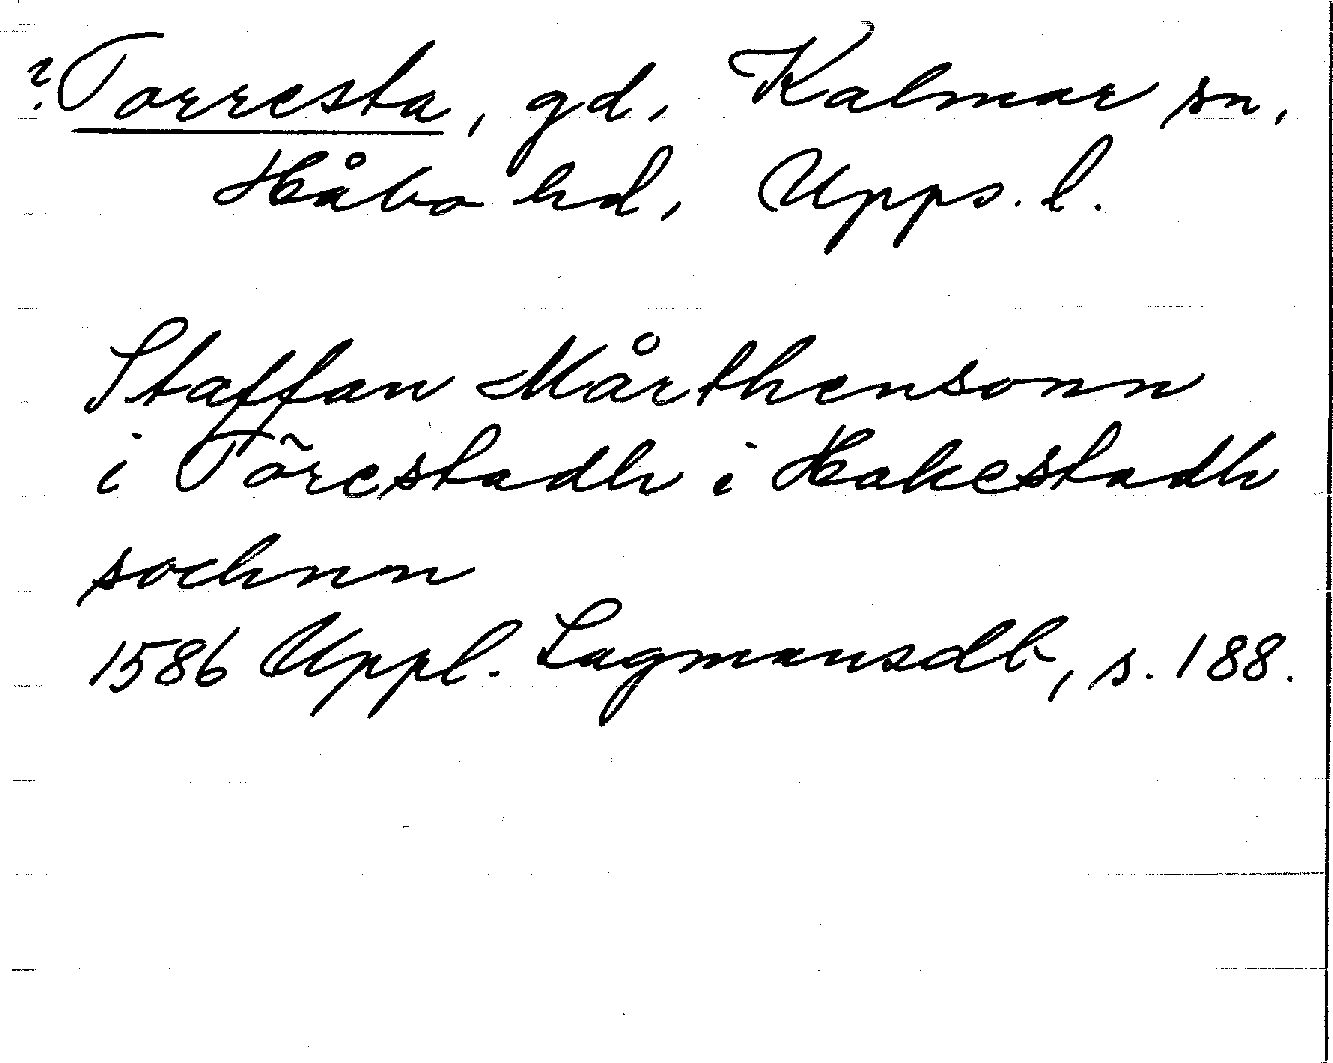 ? Torresta, gd, Kalmar sn,
Håbo hd, Upps. l.
Staffan Mårthensonn
i Tõrestadh i Hakestadh
sochnn
1586 Uppl. Lagmansdb, s. 188.